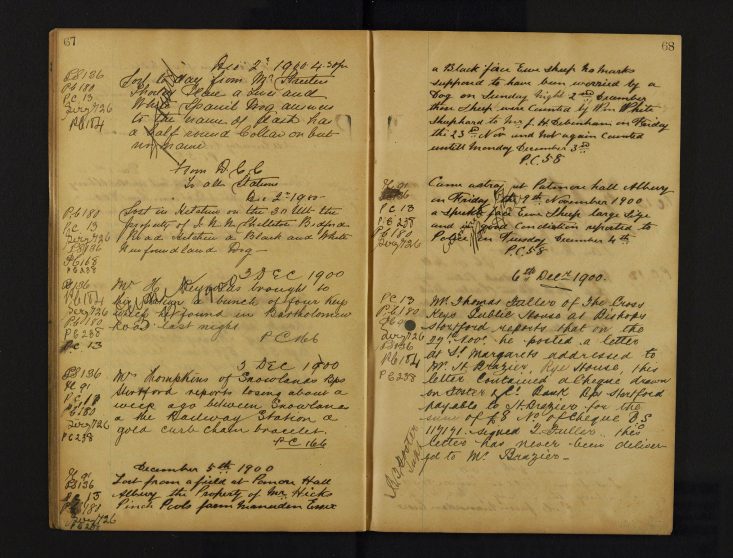 67
Dec 2nd 1900 4.30pm
Lost to day from Mr
a Liver and
White Spaniel Dog answers
to the name of Dash has
a half round Collar on but
no name
PS 136
P6 180
P.C 13
Serg 726
P6 154
From D.C.C
To all Stations
Dec 2nd 1900
P6 180
P.C 13
Serg 726
PS 136
P6 168
P6 238
Lost in Hitchin on the 30 Ult the
property of
Road Hitchin a Black and White
Newfoundland Dog -
3 DEC 1900
136
P6 154
Serg 726
P6 180
P6 238
P.C. 13
Mr H. brought to
a bunch of four keys
which he found in Bartholomew
Road last night
PC 166
3 DEC 1900
PS 136
H 91
P.C 13
P6 180
Serg 726
P6 238
Mrs Thompkins of Snowlands Bps
Stortford reports losing about a
week ago between Snowlands
& the Railway Station a
gold curb chain bracelet
PC 166
December 5th 1900
H 91
PS 136
P.C 13
P6 180
Serg 726
P6 238
Lost from a field at Hall
Albury the Property of Mr Hicks
Pinch Pools farm Manuden Essex
68
a Black face Ewe Sheep No marks
supposed to have been worried by a
Dog on Sunday Night 2nd December
these Sheep were Counted by Wm White
Shephard to Mr J. H. Debenham on Friday
the 23rd Nov and not again Counted
untill Monday December 3rd
P.C 58
H 91
136
P.C 13
P6 238
P6 180
Serg 726
Came astray at Patmore hall Albury
on Friday the 9th November 1900
a face Ewe Sheep large Size
and in good Condiction reported to
Police on Tuesday December 4th
P.C 58
6th Decr 1900.
P.C 13
P.6 180
Serg 726
136
P6 154
P6 238
Mr. Thomas Fuller of The Cross
Keys Public House at Bishops
Stortford reports that on the
29. Novr. he posted a letter
at St. Margarets addressed to
Mr. H. Brazier, Rye House, this
letter Contained a Cheque drawn
on Foster & Co Bank Bps Stortford
payable to H. Brazier for the
sum of No of Cheque
signed T. Fuller. This
letter has never been deliver-
ed to Mr. Brazier -